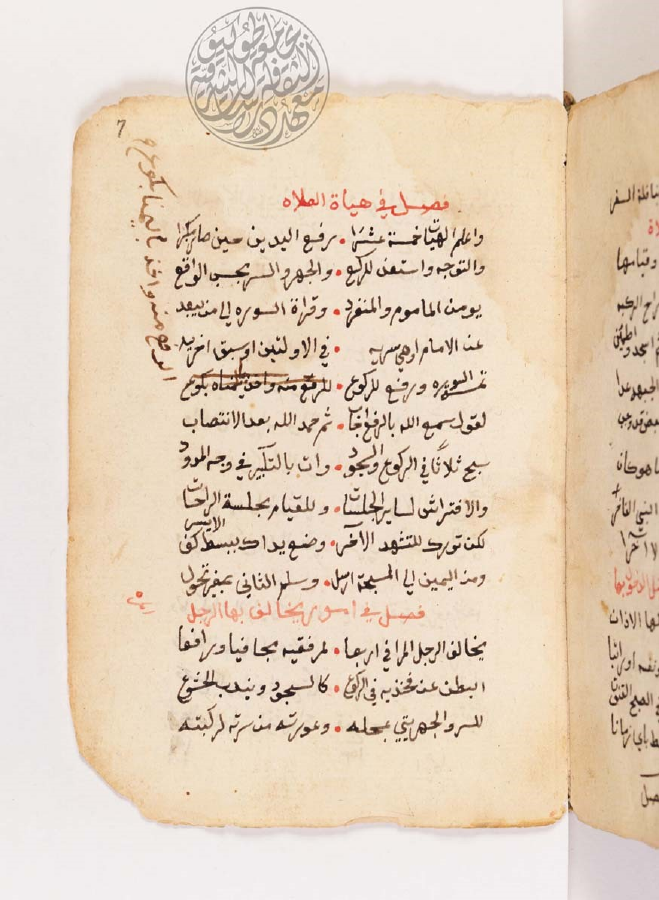 7
فصل في هياة الصلاه
واعلم الهيات خمسة عشرا • رفع اليدين حين صار مكبرا
والتوجه واستعذ للركع • والجهر والسر بحسب الواقع
يومن الماموم والمنفرد • وقراة السوره لا من يبعد
عن الامام او هي سريه • في الاولتين او سبق اخريه
تمت السوره ورفع للركوع • للرفع منه واخذ يمناه بكوع
الرفع منه واخذ باليمنا بكوع
لقول سمع الله بالرفع اجاب • ثم حمد الله بعد الانتصاب
سبح ثلاثا في الركوع والسجود • وات بالتكبير في وجه
والافتراش لساير الجلسات • وللقيام بجلسة الراحات
لكن تورك للتشهد الاخر • وضع يداك ببسط كف
الايسر
ومن اليمين الى المسبحة ارسل • وسلم الثاني بغير تحول
فصل في امور يخالف بها الرجل
يخالف الرجل المرا في اربعا • لمرفقيه مجافيا ورافعا
البطن عن فخذيه في الركوع • كالسجود ويندب الخشوع
للسر والجهر يتي بمحله • وعورته من سرته لركبته